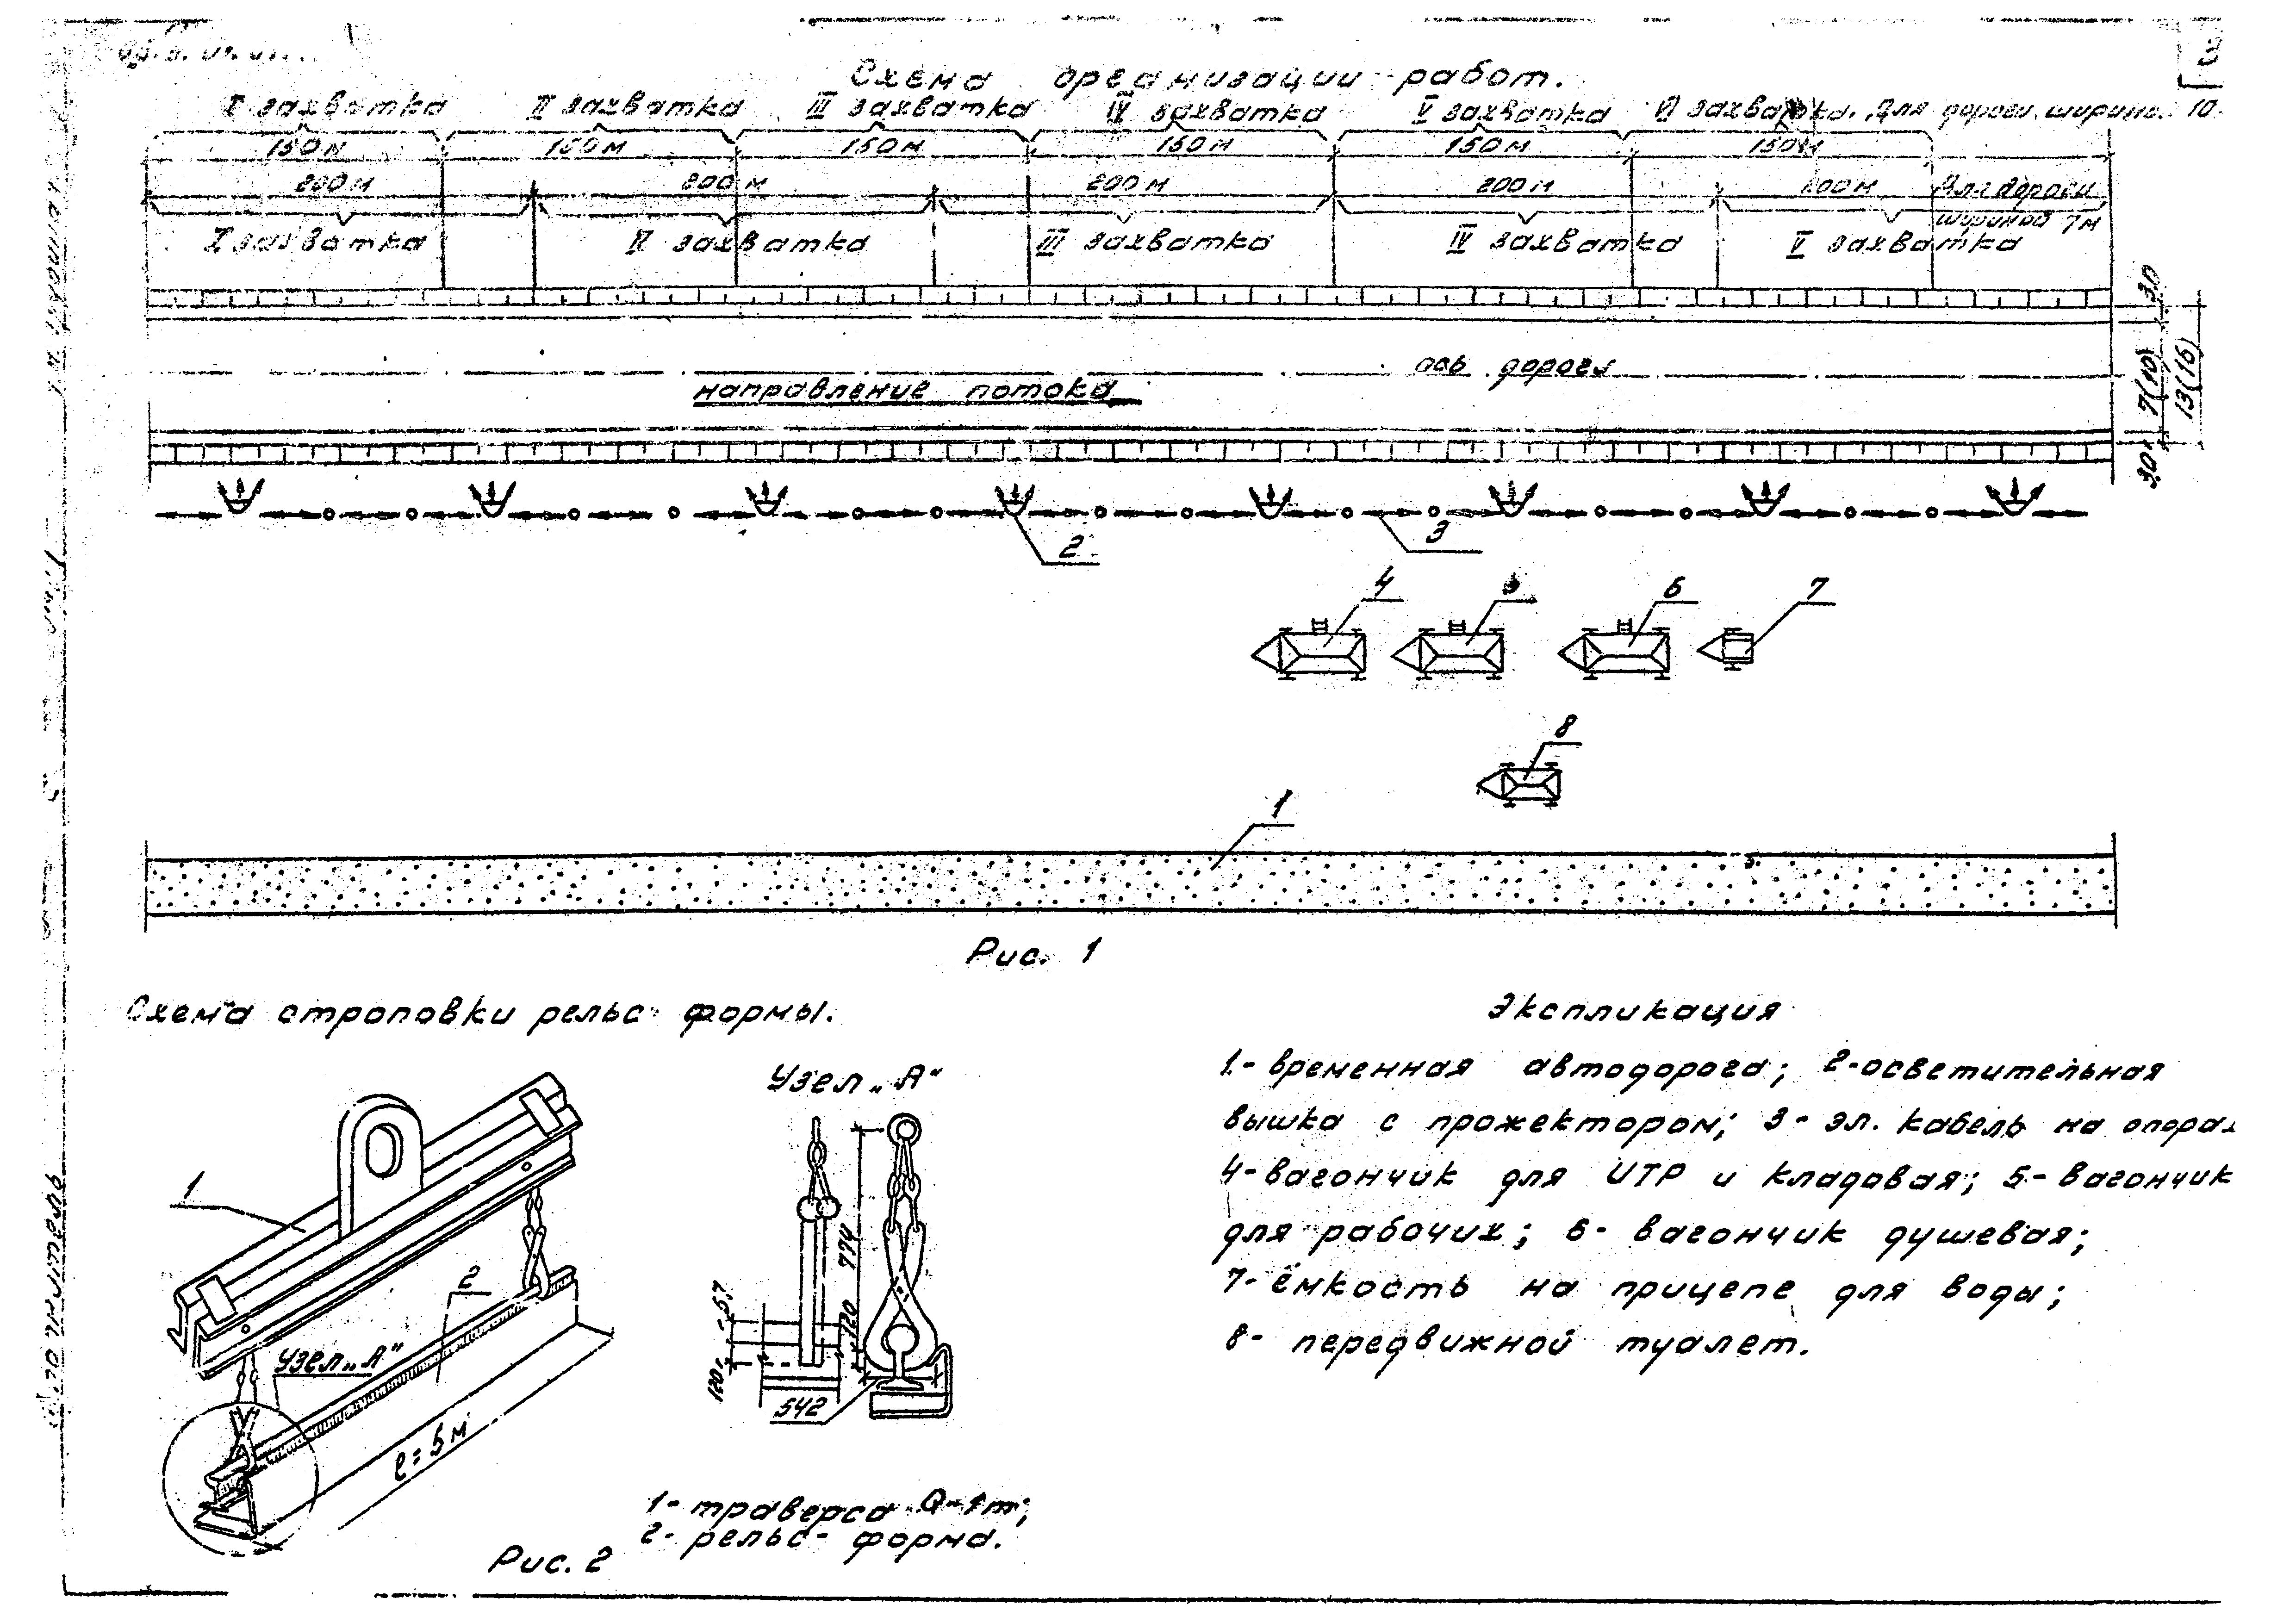 3
Схема организации работ.
I захватка II захватка III захватка IV захватка V захватка VI захватка. Для дороги ширино. 10.
150м 150м 150м 150м 150м 150м
200м 200м 200м 200м 200м Для дороги
шириной 7м
I захватка II захватка III захватка IV захватка V захватка
3,0
ось дороги
направление потока
7(10)
13(16)
3,0
2
3
4 5 6 7
8
1
Рис. 1
Схема строповки рельс формы.
Узел „А“
1
2
Узел „А“
ℓ=5м
774
120
67
120
542
1- траверса Q-1т;
2- рельс- форма.
Рис. 2
Экспликация
1.- временная автодорога; 2-осветительная
вышка с прожектором; 3- эл. кабель на опорах
4-вагончик для ИТР и кладовая; 5- вагончик
для рабочих; 6- вагончик душевая;
7- ёмкость на прицепе для воды;
8- передвижной туалет.